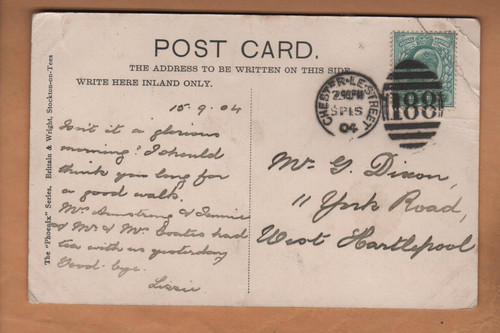 POST CARD.
THE ADDRESS TO BE WRITTEN ON THIS SIDE
WRITE HERE INLAND ONLY.
The "Phoenix" Series. Brittain & Wright, Stockton-on-Tees
15.9.04
Isn't it a glorious
morning! I should
think you long for
a good walk.
Mrs Armstrong & Fannie
& Mr & Mrs Coates had
tea with us yesterday
Good-bye.
Lizzie.
CHESTER-LE-STREET
SP 15
04
188
Mr G. Dixon,
11 York Road,
West Hartlepool